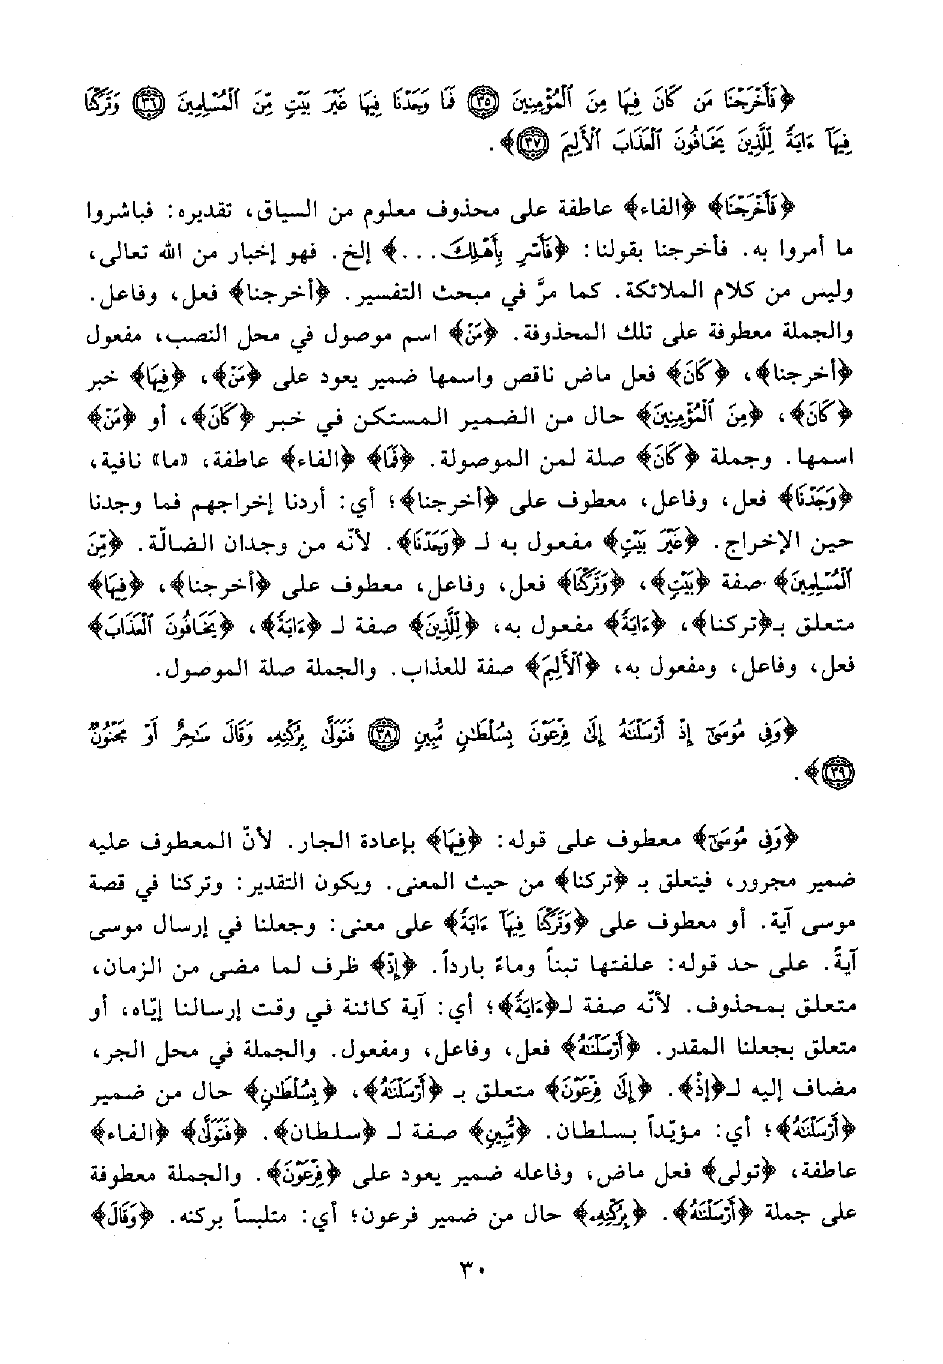 ﴿فَأَخْرَجْنَا مَن كَانَ فِيهَا مِنَ ٱلْمُؤْمِنِينَ ٣٥ فَمَا وَجَدْنَا فِيهَا غَيْرَ بَيْتٍ مِّنَ ٱلْمُسْلِمِينَ ٣٦ وَتَرَكْنَا
فِيهَآ ءَايَةً لِّلَّذِينَ يَخَافُونَ ٱلْعَذَابَ ٱلْأَلِيمَ ٣٧﴾.
﴿فَأَخْرَجْنَا﴾ ﴿الفاء﴾ عاطفة على محذوف معلوم من السياق، تقديره: فباشروا
ما أمروا به. فأخرجنا بقولنا: ﴿فَأَسْرِ بِأَهْلِكَ...﴾ إلخ. فهو إخبار من الله تعالى،
وليس من كلام الملائكة. كما مرَّ في مبحث التفسير. ﴿أخرجنا﴾ فعل، وفاعل.
والجملة معطوفة على تلك المحذوفة. ﴿مَنْ﴾ اسم موصول في محل النصب، مفعول
﴿أخرجنا﴾، ﴿كَانَ﴾ فعل ماض ناقص واسمها ضمير يعود على ﴿مَنْ﴾، ﴿فِيهَا﴾ خبر
﴿كَانَ﴾، ﴿مِنَ ٱلْمُؤْمِنِينَ﴾ حال من الضمير المستكن في خبر ﴿كَانَ﴾، أو ﴿مَنْ﴾
اسمها. وجملة ﴿كَانَ﴾ صلة لمن الموصولة. ﴿فَمَا﴾ ﴿الفاء﴾ عاطفة، «ما» نافية،
﴿وَجَدْنَا﴾ فعل، وفاعل، معطوف على ﴿أخرجنا﴾؛ أي: أردنا إخراجهم فما وجدنا
حين الإخراج. ﴿غَيْرَ بَيْتٍ﴾ مفعول به لـ ﴿وَجَدْنَا﴾. لأنّه من وجدان الضالّة. ﴿مِّنَ
ٱلْمُسْلِمِينَ﴾ صفة ﴿بَيْتٍ﴾، ﴿وَتَرَكْنَا﴾ فعل، وفاعل، معطوف على ﴿أخرجنا﴾، ﴿فِيهَا﴾
متعلق بـ﴿تركنا﴾، ﴿ءَايَةً﴾ مفعول به، ﴿لِلَّذِينَ﴾ صفة لـ ﴿ءَايَةً﴾، ﴿يَخَافُونَ ٱلْعَذَابَ﴾
فعل، وفاعل، ومفعول به، ﴿ٱلْأَلِيمَ﴾ صفة للعذاب. والجملة صلة الموصول.
﴿وَفِى مُوسَىٰٓ إِذْ أَرْسَلْنَٰهُ إِلَىٰ فِرْعَوْنَ بِسُلْطَٰنٍ مُّبِينٍ ٣٨ فَتَوَلَّىٰ بِرُكْنِهِۦ وَقَالَ سَٰحِرٌ أَوْ مَجْنُونٌ
٣٩﴾.
﴿وَفِى مُوسَىٰٓ﴾ معطوف على قوله: ﴿فِيهَا﴾ بإعادة الجار. لأنّ المعطوف عليه
ضمير مجرور، فيتعلق بـ ﴿تركنا﴾ من حيث المعنى. ويكون التقدير: وتركنا في قصة
موسى آية. أو معطوف على ﴿وَتَرَكْنَا فِيهَآ ءَايَةً﴾ على معنى: وجعلنا في إرسال موسى
آيةً. على حد قوله: علفتها تبناً وماءً بارداً. ﴿إِذْ﴾ ظرف لما مضى من الزمان،
متعلق بمحذوف. لأنّه صفة لـ﴿ءَايَةً﴾؛ أي: آية كائنة في وقت إرسالنا إيّاه، أو
متعلق بجعلنا المقدر. ﴿أَرْسَلْنَٰهُ﴾ فعل، وفاعل، ومفعول. والجملة في محل الجر،
مضاف إليه لـ﴿إِذْ﴾. ﴿إِلَىٰ فِرْعَوْنَ﴾ متعلق بـ ﴿أَرْسَلْنَٰهُ﴾، ﴿بِسُلْطَٰنٍ﴾ حال من ضمير
﴿أَرْسَلْنَٰهُ﴾؛ أي: مؤيّداً بسلطان. ﴿مُّبِينٍ﴾ صفة لـ ﴿سلطان﴾. ﴿فَتَوَلَّىٰ﴾ ﴿الفاء﴾
عاطفة، ﴿تولى﴾ فعل ماض، وفاعله ضمير يعود على ﴿فِرْعَوْنَ﴾. والجملة معطوفة
على جملة ﴿أَرْسَلْنَٰهُ﴾. ﴿بِرُكْنِهِۦ﴾ حال من ضمير فرعون؛ أي: متلبساً بركنه. ﴿وَقَالَ﴾
٣٠